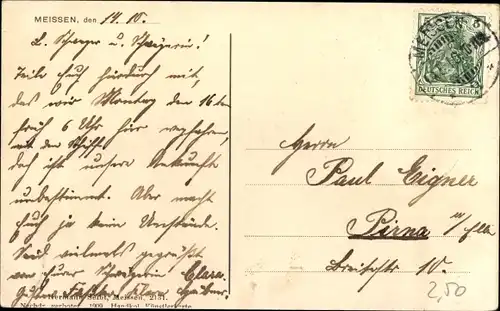 MEISSEN, den 14. 10.
L. Schwager u. Schwägerin!
Teile Euch hierdurch mit,
das wir Montag den 16ten
früh 6 Uhr hier wegfahren,
mit den Schiff
doch ist unsere Ankunft
unbestimmt. Aber macht
Euch ja kein Umstände.
Seid vielmals gegrüßt
von Eurer Schwägerin Clara.
Hermann Seibt, Meissen, 2131.
Nachdr. verboten. 1909. Handkol. Künstlerkarte
MEISSEN
DEUTSCHES REICH
Herrn
Paul Eigner
Pirna a/Elbe
Breitestr 10.
2,50